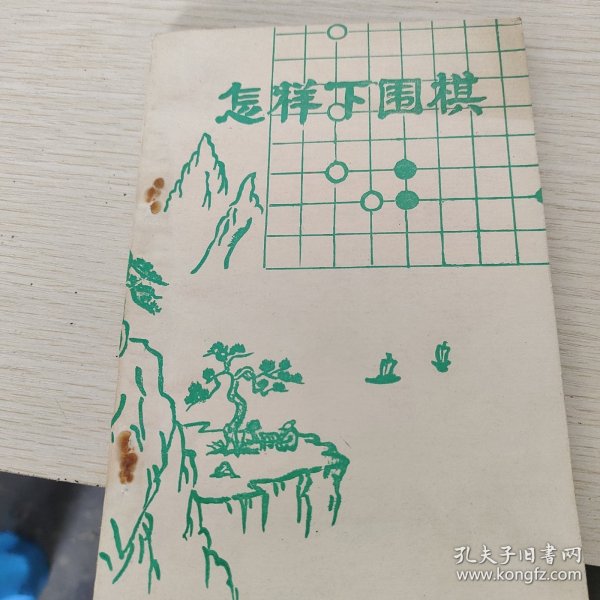 怎样下围棋
孔夫子旧书网
www.kongfz.com